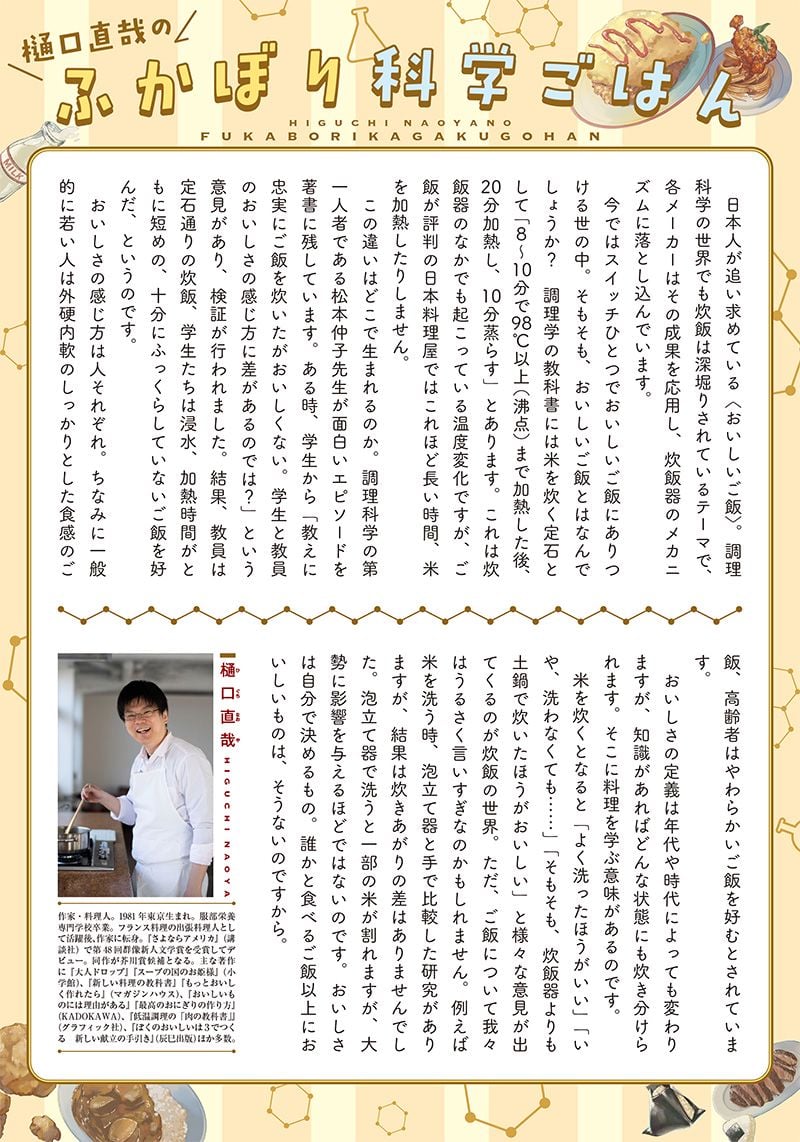 樋口直哉の
ふかぼり科学ごはん
HIGUCHI NAOYANO
FUKABORIKAGAKUGOHAN
MILK
日本人が追い求めている〈おいしいご飯〉。調理
科学の世界でも炊飯は深堀りされているテーマで、
各メーカーはその成果を応用し、炊飯器のメカニ
ズムに落とし込んでいます。
今ではスイッチひとつでおいしいご飯にありつ
ける世の中。そもそも、おいしいご飯とはなんで
しょうか? 調理学の教科書には米を炊く定石と
して「8〜10分で98℃以上(沸点)まで加熱した後、
20分加熱し、10分蒸らす」とあります。これは炊
飯器のなかでも起こっている温度変化ですが、ご
飯が評判の日本料理屋ではこれほど長い時間、米
を加熱したりしません。
この違いはどこで生まれるのか。調理科学の第
一人者である松本仲子先生が面白いエピソードを
著書に残しています。ある時、学生から「教えに
忠実にご飯を炊いたがおいしくない。学生と教員
のおいしさの感じ方に差があるのでは?」という
意見があり、検証が行われました。結果、教員は
定石通りの炊飯、学生たちは浸水、加熱時間がと
もに短めの、十分にふっくらしていないご飯を好
んだ、というのです。
おいしさの感じ方は人それぞれ。ちなみに一般
的に若い人は外硬内軟のしっかりとした食感のご
飯、高齢者はやわらかいご飯を好むとされていま
す。
おいしさの定義は年代や時代によっても変わり
ますが、知識があればどんな状態にも炊き分けら
れます。そこに料理を学ぶ意味があるのです。
米を炊くとなると「よく洗ったほうがいい」「い
や、洗わなくても……」「そもそも、炊飯器よりも
土鍋で炊いたほうがおいしい」と様々な意見が出
てくるのが炊飯の世界。ただ、ご飯について我々
はうるさく言いすぎなのかもしれません。例えば
米を洗う時、泡立て器と手で比較した研究があり
ますが、結果は炊きあがりの差はありませんでし
た。泡立て器で洗うと一部の米が割れますが、大
勢に影響を与えるほどではないのです。おいしさ
は自分で決めるもの。誰かと食べるご飯以上にお
いしいものは、そうないのですから。
樋口直哉
ひぐちなおや
HIGUCHI NAOYA
作家・料理人。1981年東京生まれ。服部栄養
専門学校卒業。フランス料理の出張料理人とし
て活躍後、作家に転身。『さよならアメリカ』(講
談社)で第48回群像新人文学賞を受賞してデ
ビュー。同作が芥川賞候補となる。主な著作
に『大人ドロップ』『スープの国のお姫様』(小
学館)、『新しい料理の教科書』『もっとおいし
く作れたら』(マガジンハウス)、『おいしいも
のには理由がある』『最高のおにぎりの作り方』
(KADOKAWA)、『低温調理の「肉の教科書」』
(グラフィック社)、『ぼくのおいしいは3でつく
る 新しい献立の手引き』(辰巳出版)ほか多数。